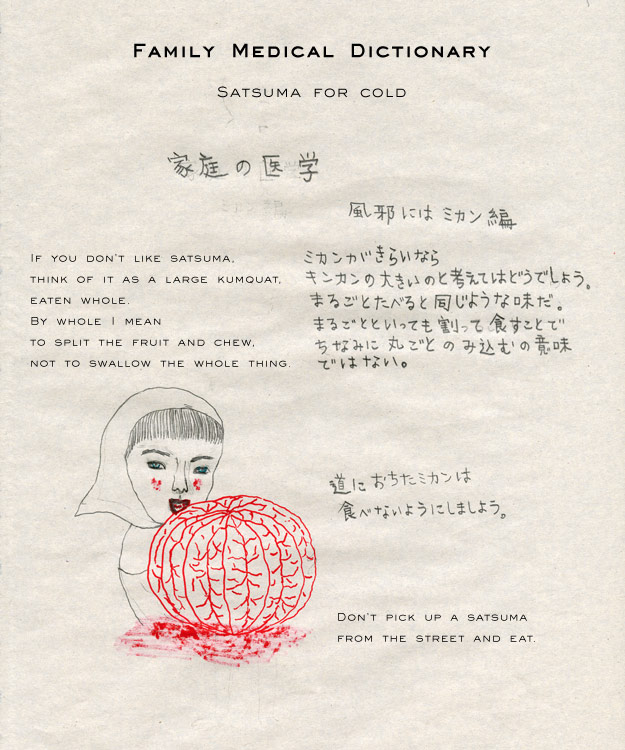 FAMILY MEDICAL DICTIONARY
SATSUMA FOR COLD
家庭の医学
風邪にはミカン編
IF YOU DON'T LIKE SATSUMA,
THINK OF IT AS A LARGE KUMQUAT,
EATEN WHOLE.
BY WHOLE I MEAN
TO SPLIT THE FRUIT AND CHEW,
NOT TO SWALLOW THE WHOLE THING.
ミカンがきらいなら
キンカンの大きいのと考えてはどうでしょう。
まるごとたべると同じような味だ。
まるごとといっても割って食すことで
ちなみに丸ごとのみ込むの意味
ではない。
道におちたミカンは
食べないようにしましょう。
DON'T PICK UP A SATSUMA
FROM THE STREET AND EAT.